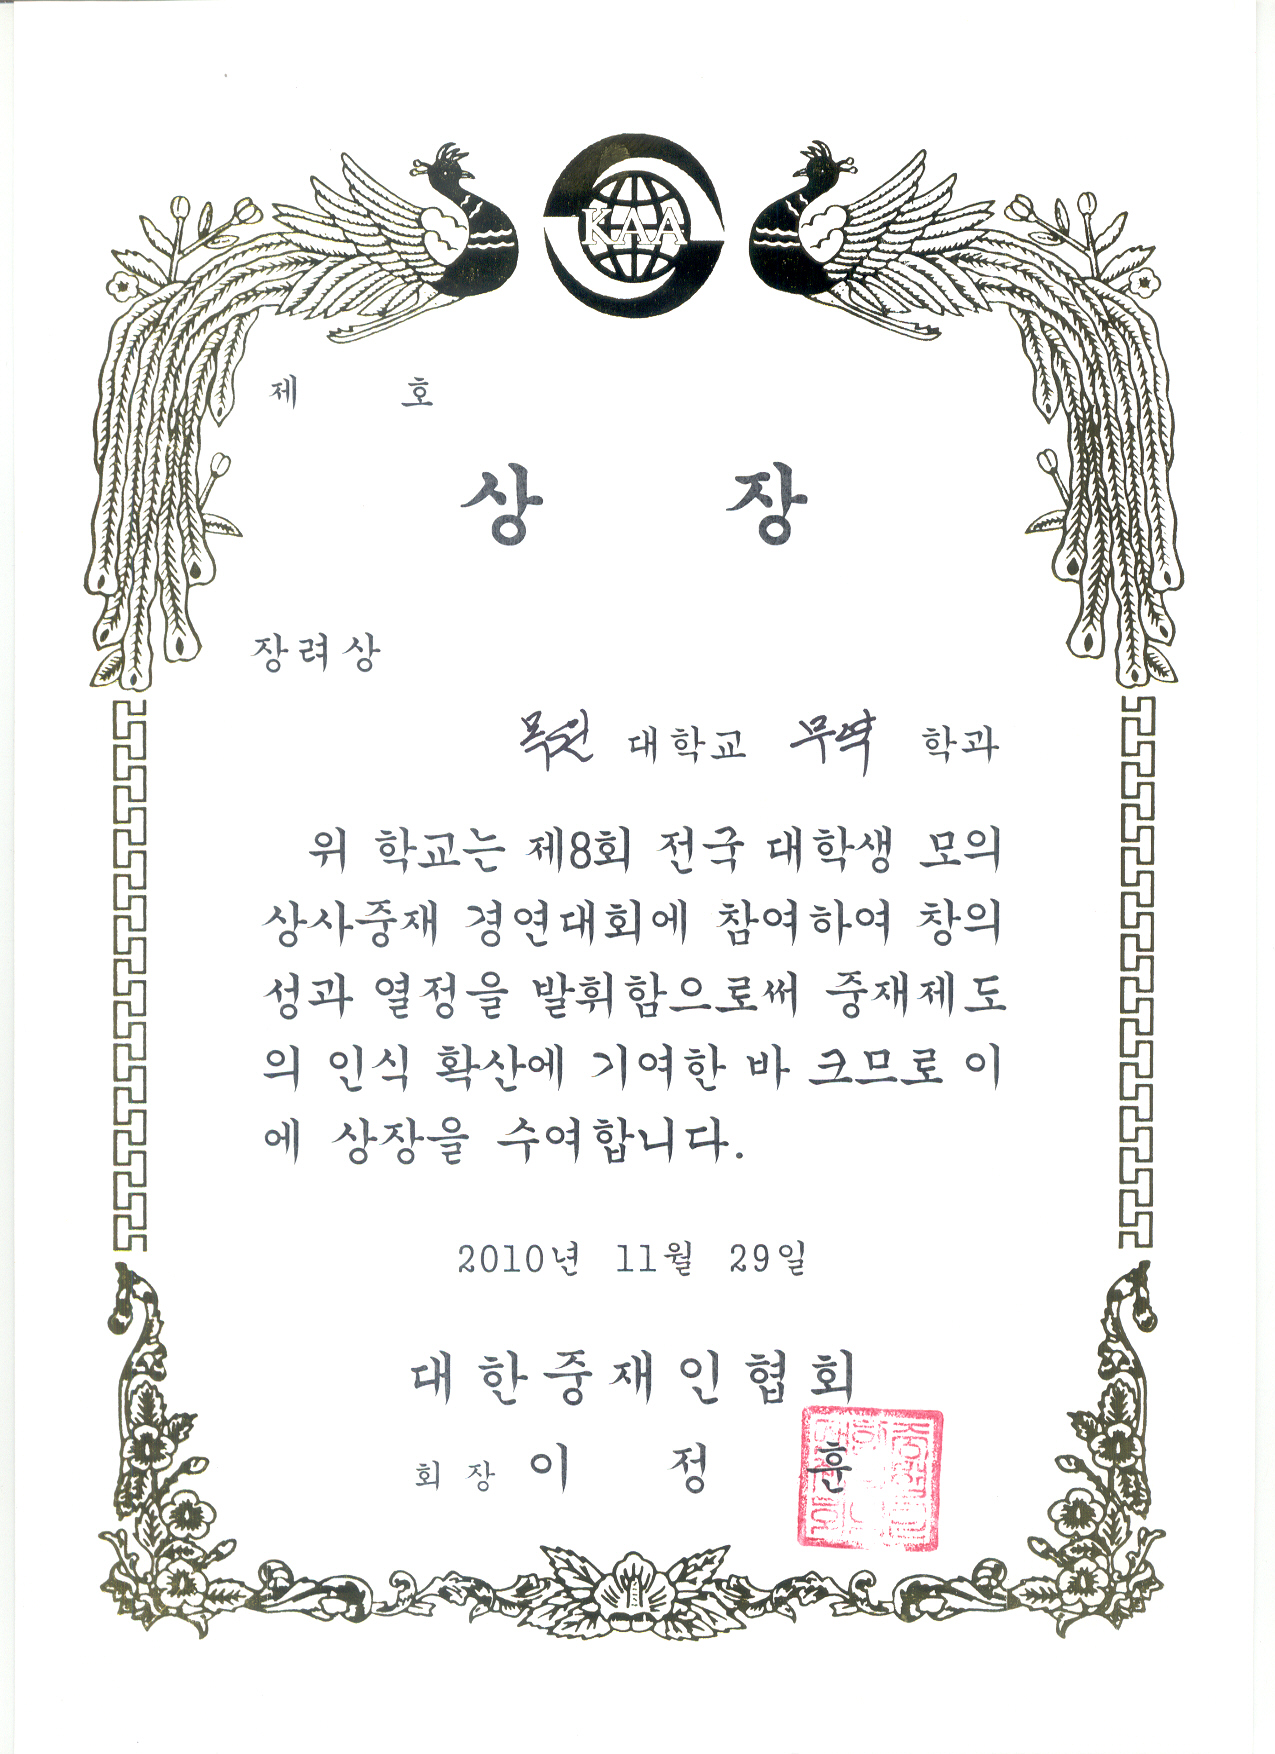 KAA
제 호
상 장
장려상
목원 대학교 무역 학과
위 학교는 제8회 전국 대학생 모의
상사중재 경연대회에 참여하여 창의
성과 열정을 발휘함으로써 중재제도
의 인식 확산에 기여한 바 크므로 이
에 상장을 수여합니다.
2010년 11월 29일
대한중재인협회
회 장 이 정 훈